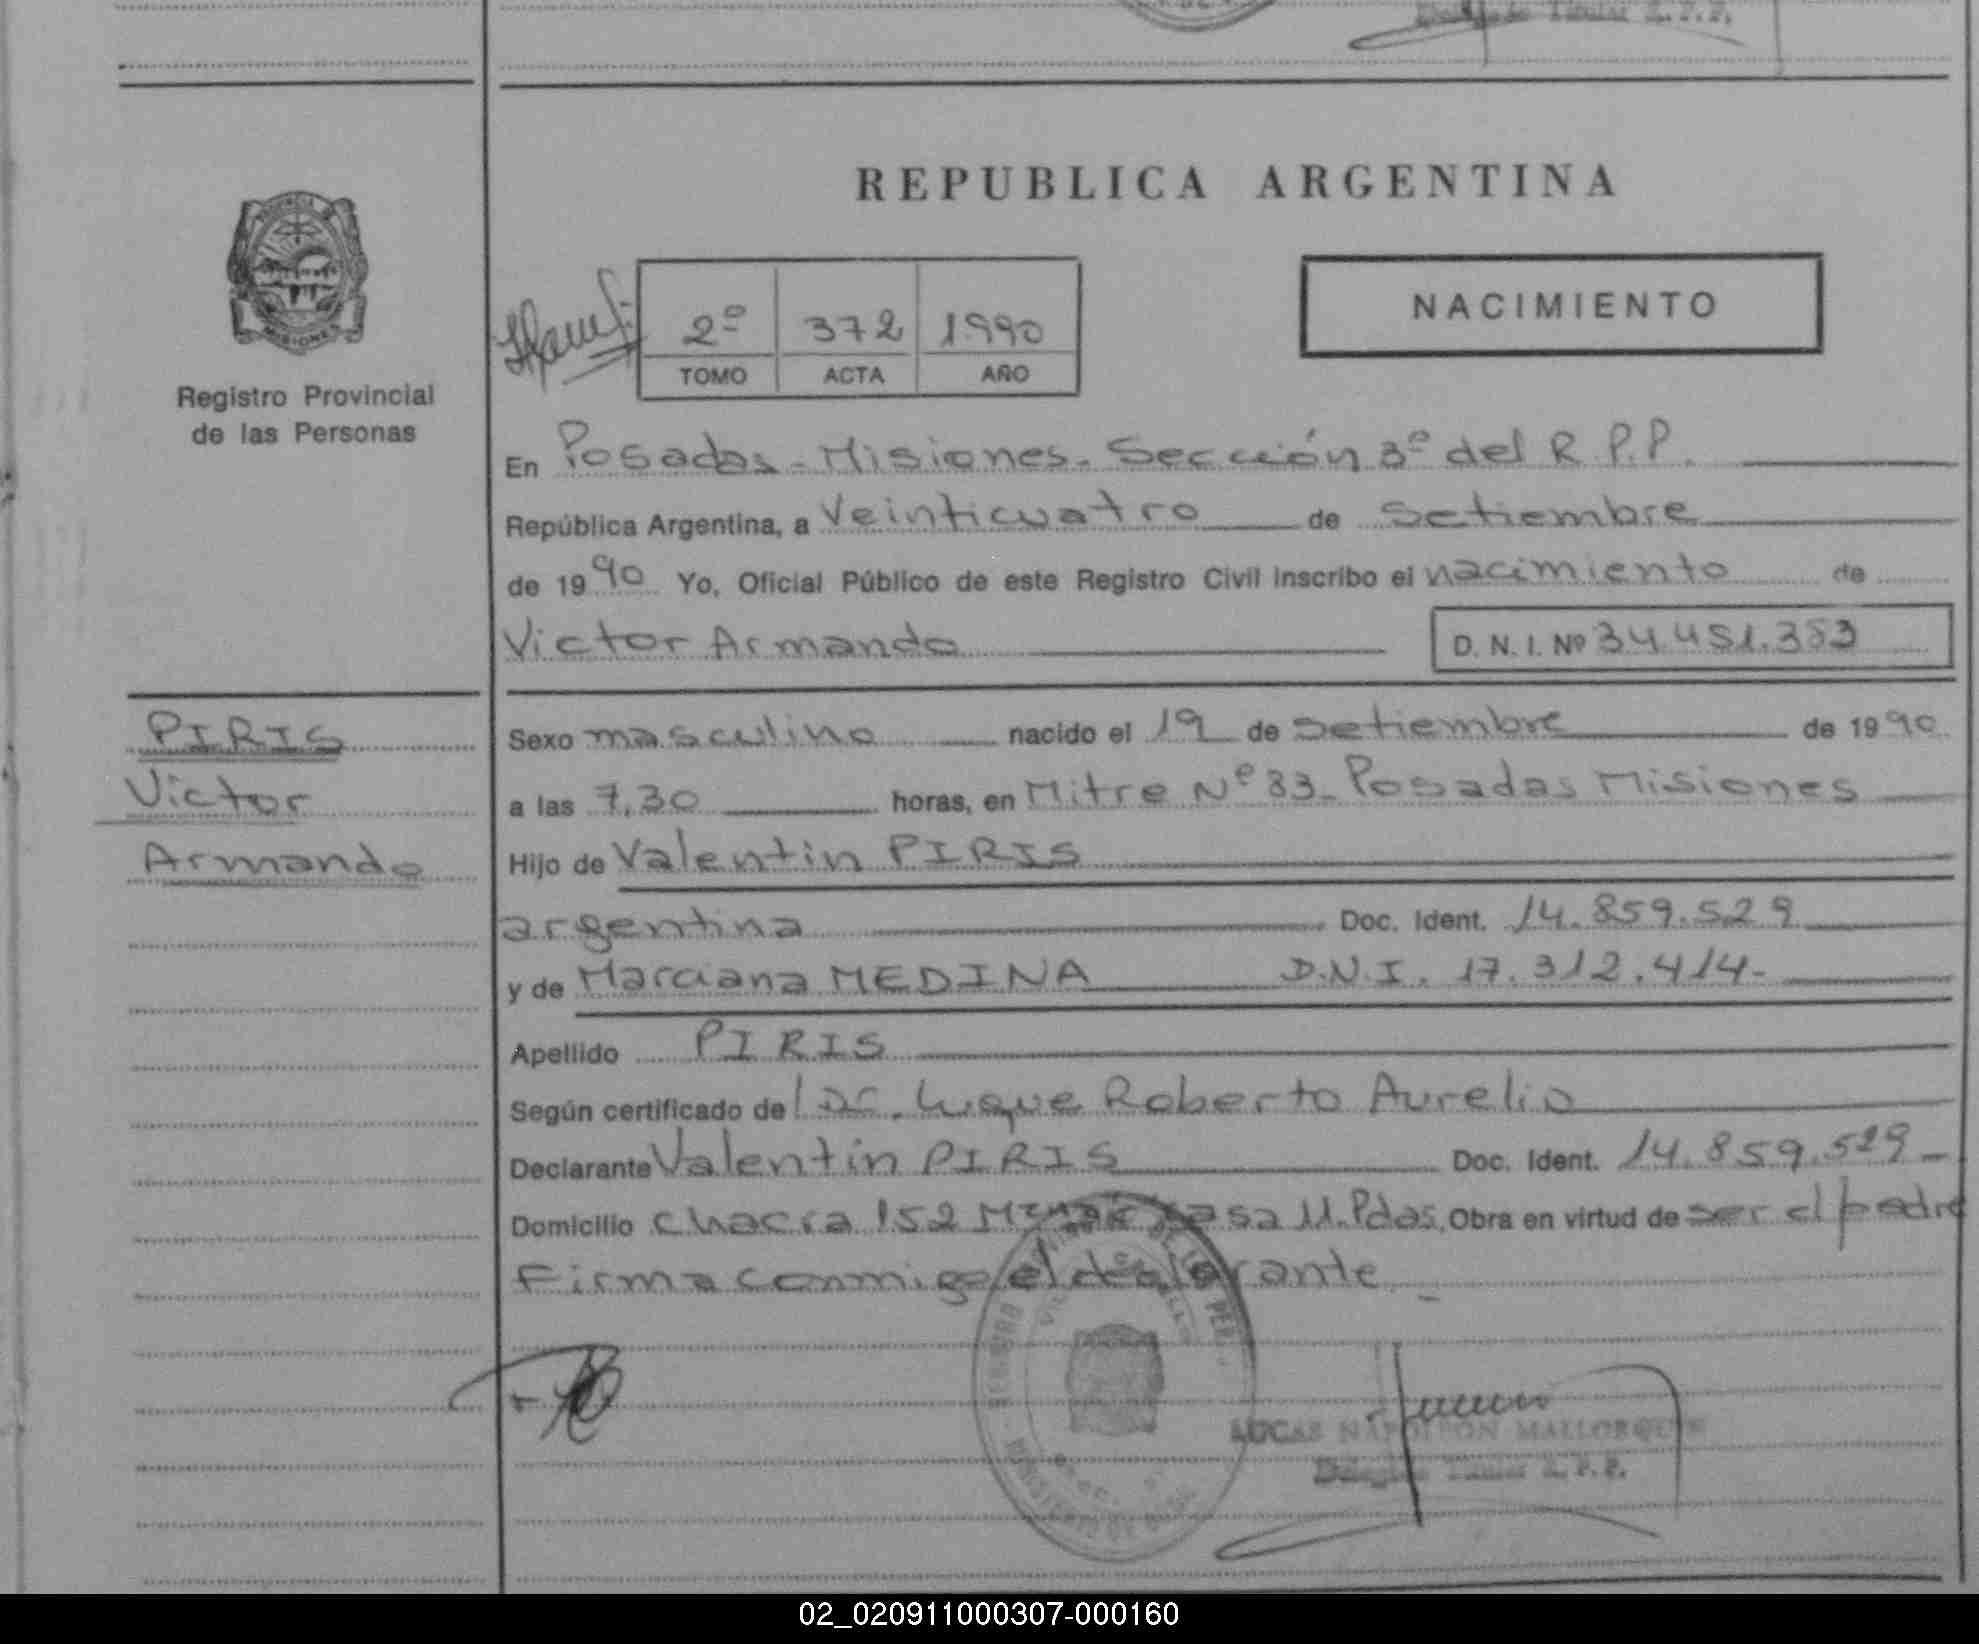 REPUBLICA ARGENTINA
PROVINCIA DE
MISIONES
Registro Provincial
de las Personas
2º 372 1990
TOMO ACTA AÑO
NACIMIENTO
En Posadas - Misiones. Sección 3º del R.P.P.
República Argentina, a Veinticuatro de Setiembre
de 1990 Yo, Oficial Público de este Registro Civil Inscribo el nacimiento de
Victor Armando D. N. I. Nº 34.451.383
PIRIS
Victor
Armando
Sexo masculino nacido el 19 de Setiembre de 1990
a las 7,30 horas, en Mitre Nº 83- Posadas Misiones
Hijo de Valentin PIRIS
argentina Doc. Ident. 14.859.529
y de Marciana MEDINA D.N.I. 17.312.414-
Apellido PIRIS
Según certificado del Dr. Luque Roberto Aurelio
Declarante Valentin PIRIS Doc. Ident. 14.859.529-
Domicilio chacra 152 casa 11. Pdas. Obra en virtud de ser el padre
Firma conmigo el declarante.-
LUCAS NAPOLEON MALLORQUIN
Delegado Titular R.P.P.
02_020911000307-000160